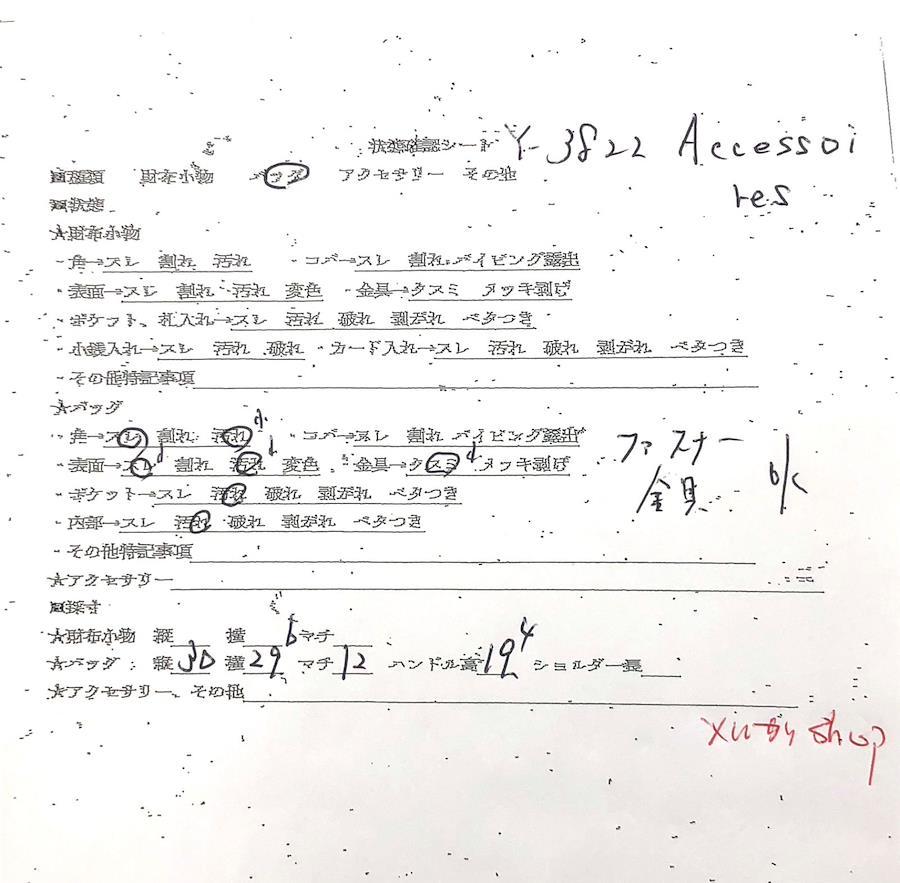 状態確認シート Y-3822 Accessoi
res
■種類 財布小物 バッグ アクセサリー その他
■状態
★財布小物
・角→スレ 割れ 汚れ ・コバ→スレ 割れ パイピング露出
・表面→スレ 割れ 汚れ 変色 ・金具→クスミ メッキ剥げ
・ポケット、札入れ→スレ 汚れ 破れ 剥がれ ベタつき
・小銭入れ→スレ 汚れ 破れ ・カード入れ→スレ 汚れ 破れ 剥がれ ベタつき
・その他特記事項
★バッグ
・角→スレ 割れ 汚れ 小 ・コバ→スレ 割れ パイピング露出
・表面→スレ 割れ 汚れ 変色 ・金具→クスミ メッキ剥げ
ファスナー
金具
・ポケット→スレ 汚れ 破れ 剥がれ ベタつき
・内部→スレ 汚れ 破れ 剥がれ ベタつき
・その他特記事項
★アクセサリー
■採寸
★財布小物 縦 横 マチ
★バッグ:縦30 横29 マチ12 ハンドル高19 ショルダー長
★アクセサリー、その他
shop